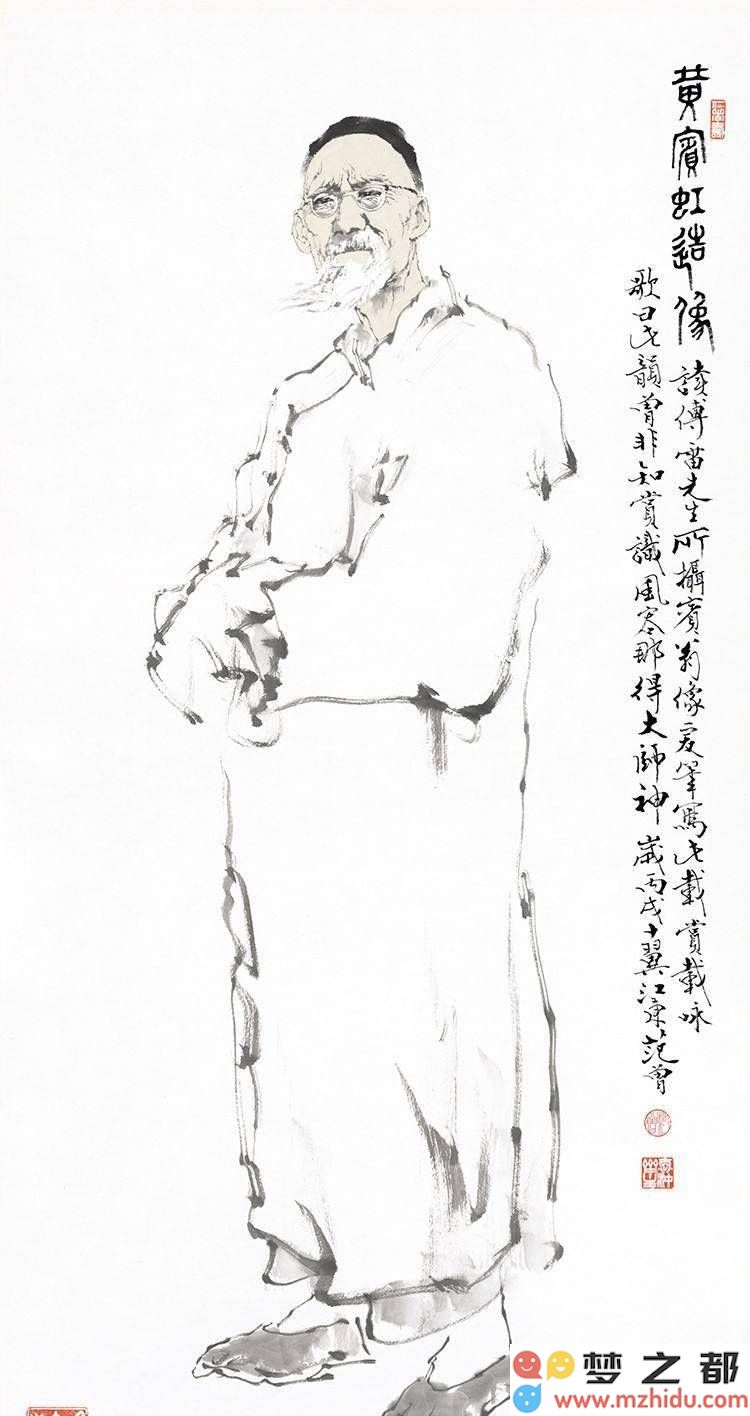 黄賓虹造像
讀傅雷先生所攝賓翁像爰筆寫此載賞載咏
歌曰此韻曾非知賞識風那得大師神歲丙戌十翼江東范曾
梦之都
www.mzhidu.com